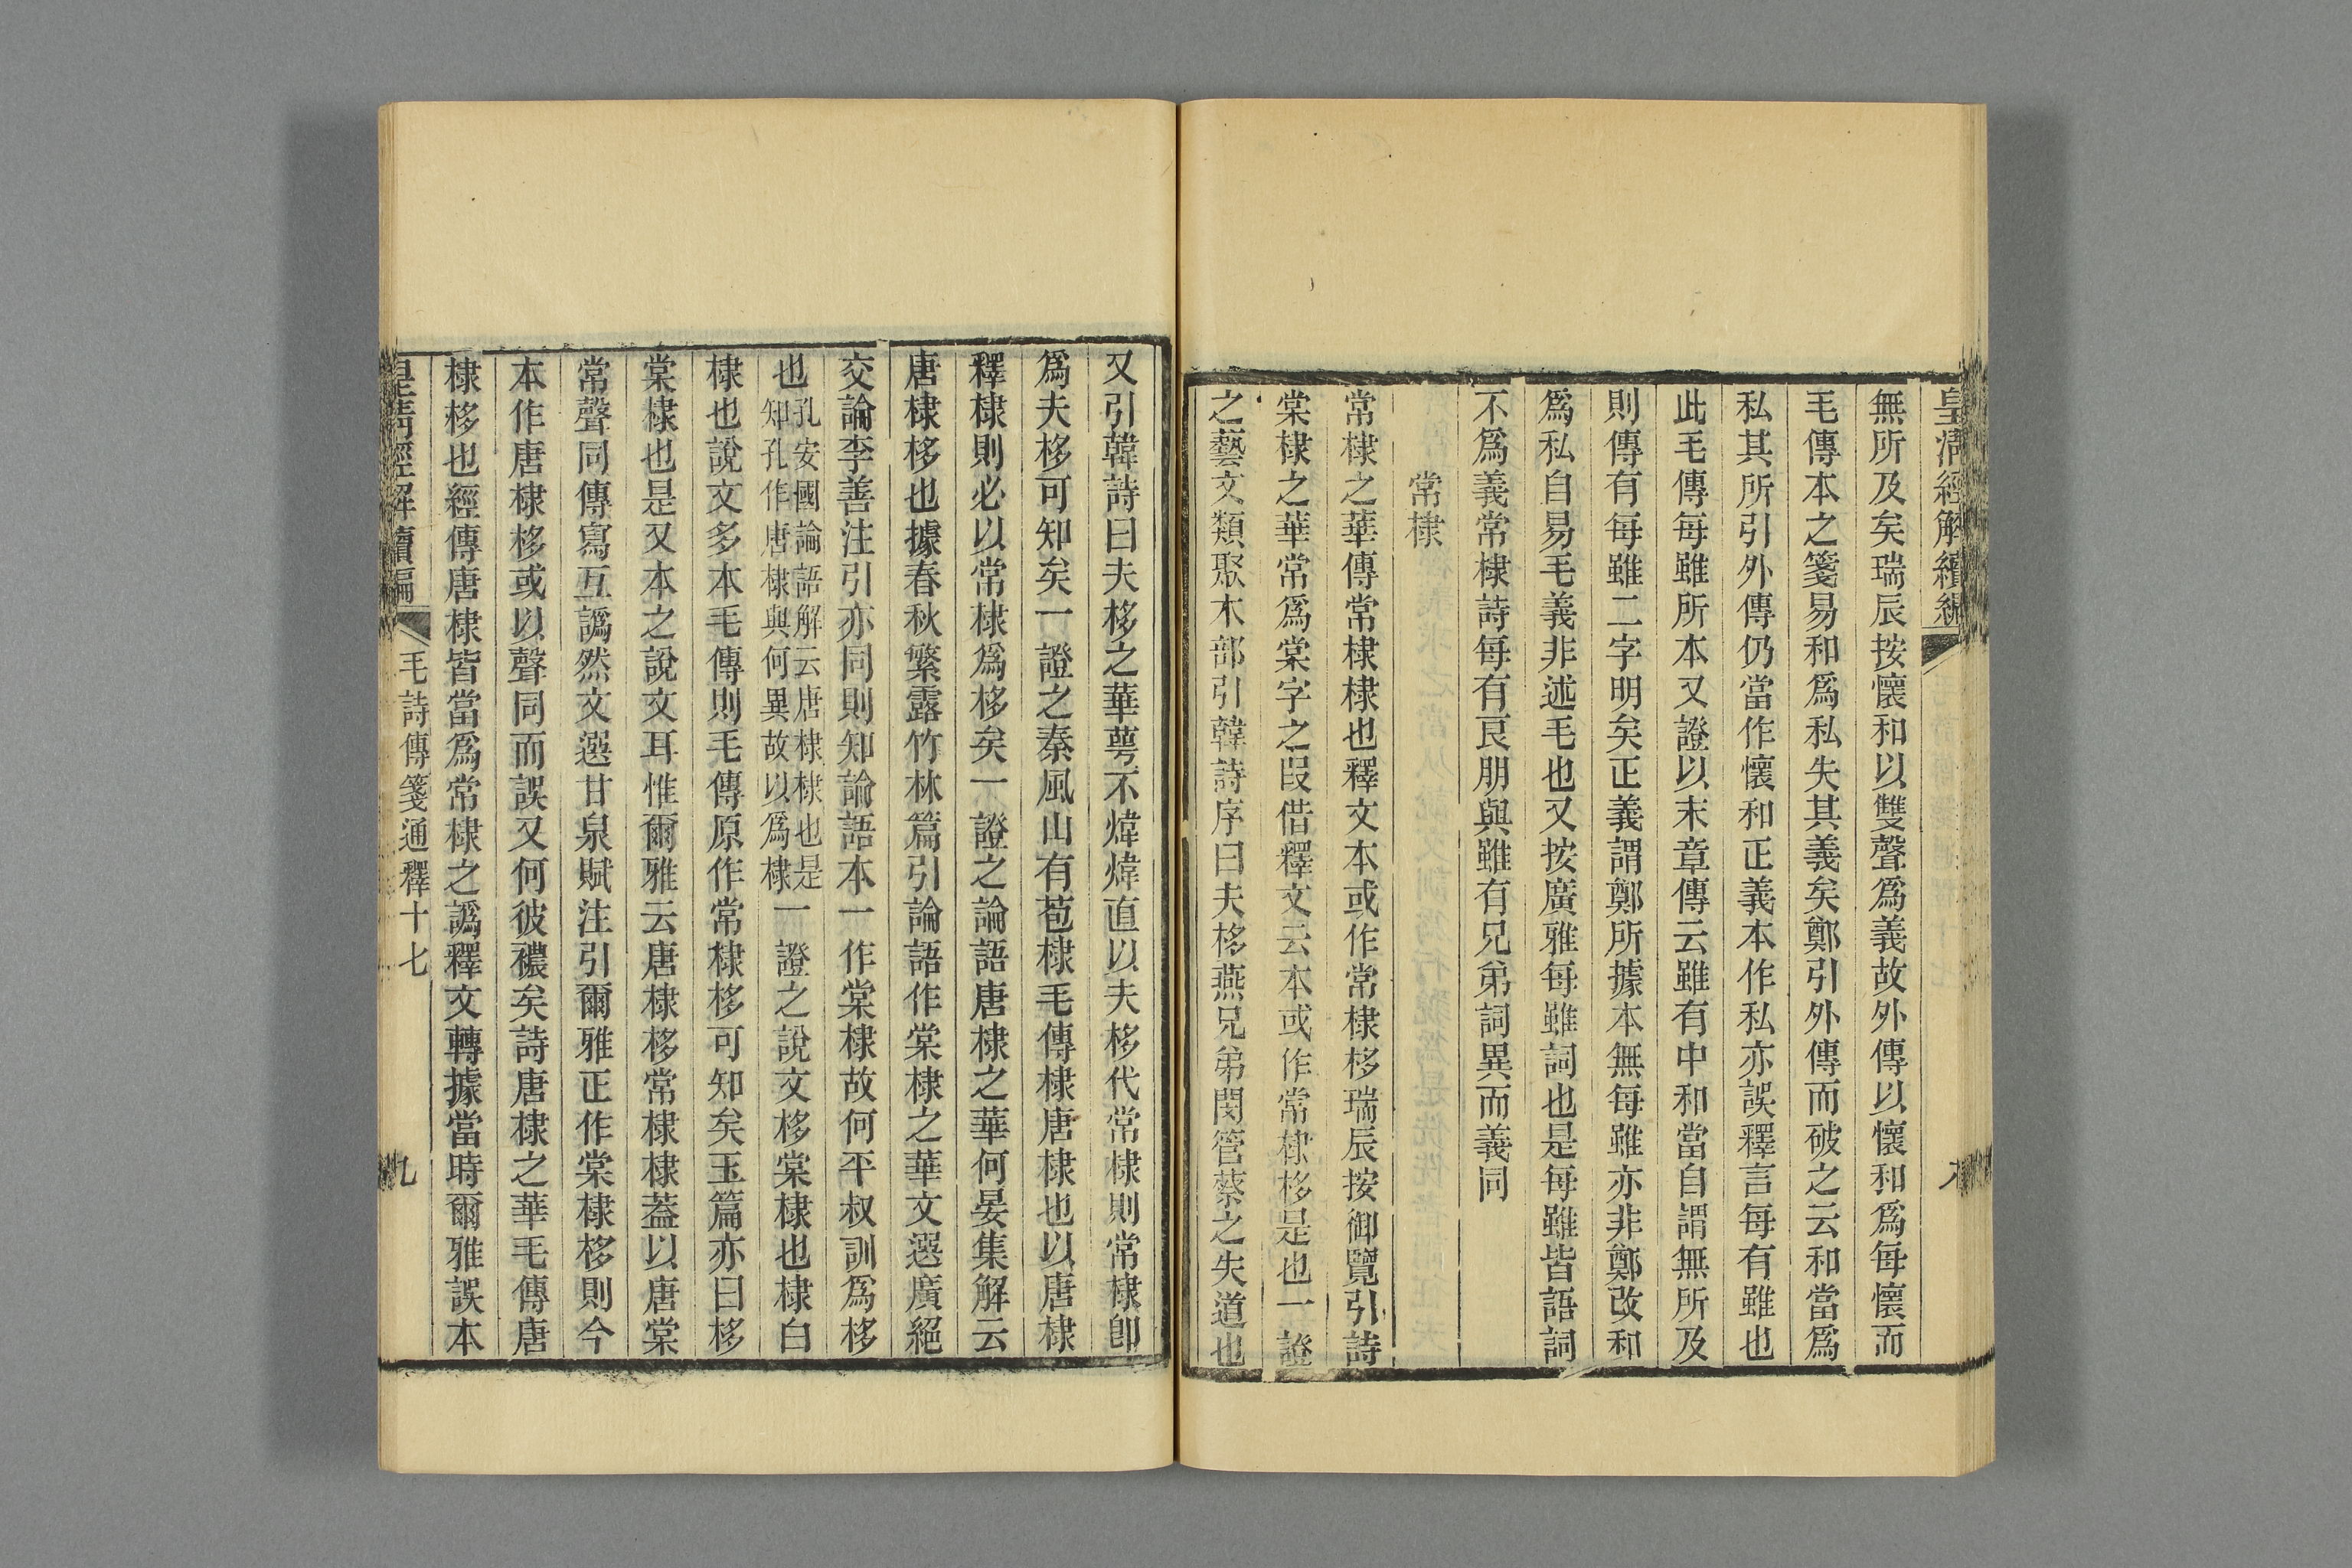 皇清經解續編
無所及矣瑞辰按懷和以雙聲爲義故外傳以懷和爲每懷而
毛傳本之箋易和爲私失其義矣鄭引外傳而破之云和當爲
私其所引外傳仍當作懷和正義本作私亦誤釋言每有雖也
此毛傳每雖所本又證以末章傳云雖有中和當自謂無所及
則傳有每雖二字明矣正義謂鄭所據本無每雖亦非鄭改和
爲私自易毛義非述毛也又按廣雅每雖詞也是每雖皆語詞
不爲義常棣詩每有良朋與雖有兄弟詞異而義同
常棣
常棣之華傳常棣棣也釋文本或作常棣栘瑞辰按御覽引詩
棠棣之華常爲棠字之叚借釋文云本或作常棣栘是也一證
之藝文類聚木部引韓詩序曰夫栘燕兄弟閔管蔡之失道也
又引韓詩曰夫栘之華萼不煒煒直以夫栘代常棣則常棣卽
爲夫栘可知矣一證之秦風山有苞棣毛傳棣唐棣也以唐棣
釋棣則必以常棣爲栘矣一證之論語唐棣之華何晏集解云
唐棣栘也據春秋繁露竹林篇引論語作棠棣之華文選廣絕
交論李善注引亦同則知論語本一作棠棣故何平叔訓爲栘
也孔安國論語解云唐棣棣也是知孔作唐棣與何異故以爲棣一證之說文栘棠棣也棣白
棣也說文多本毛傳則毛傳原作常棣栘可知矣玉篇亦曰栘
棠棣也是又本之說文耳惟爾雅云唐棣栘常棣棣蓋以唐棠
常聲同傳寫互譌然文選甘泉賦注引爾雅正作棠棣栘則今
本作唐棣栘或以聲同而誤又何彼襛矣詩唐棣之華毛傳唐
棣栘也經傳唐棣皆當爲常棣之譌釋文轉據當時爾雅誤本
皇清經解續編
毛詩傳箋通釋十七
九